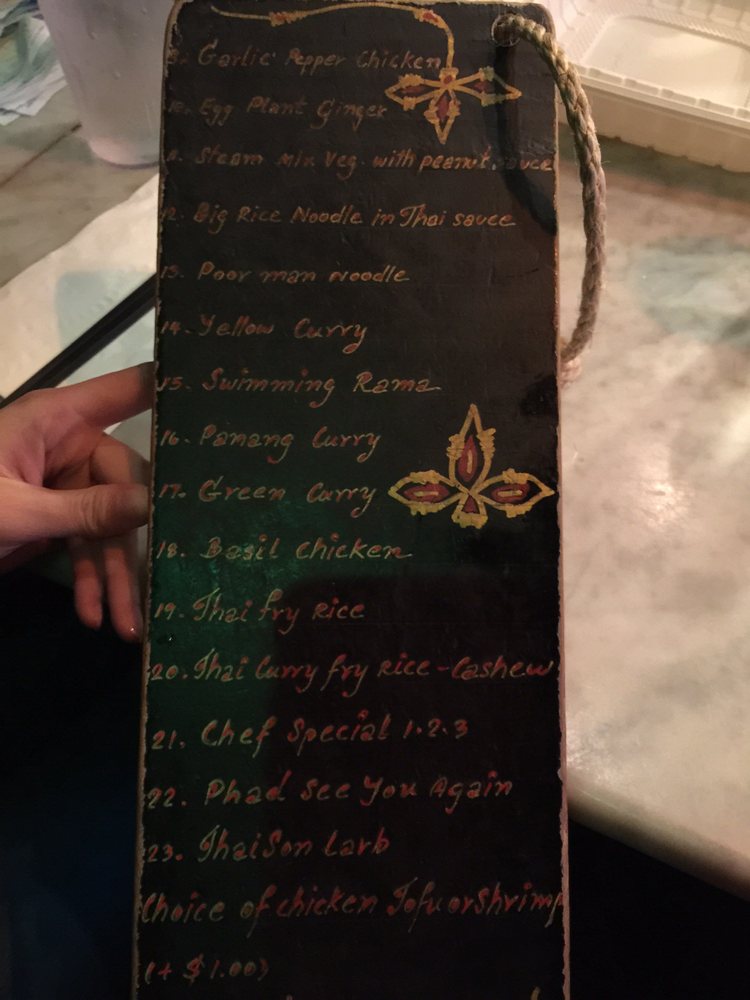 9. Garlic Pepper Chicken
10. Egg Plant Ginger
11. Steam Mix Veg. with peanut sauce
12. Big Rice Noodle in Thai sauce
13. Poor man Noodle
14. Yellow Curry
15. Swimming Rama
16. Panang Curry
17. Green Curry
18. Basil chicken
19. Thai fry Rice
20. Thai Curry fry Rice - Cashew
21. Chef Special 1.2.3
22. Phad See You Again
23. ThaiSon Larb
Choice of chicken Tofu or Shrimp
(+ $1.00)